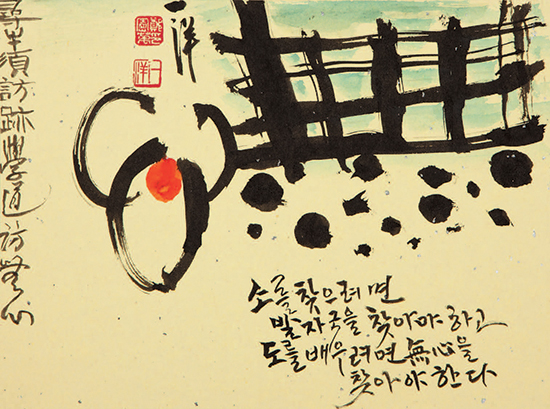 尋牛須訪跡學道訪無心
一洋
소를 찾으려면
발자국을 찾아야 하고
도를 배우려면 無心을
찾아야 한다